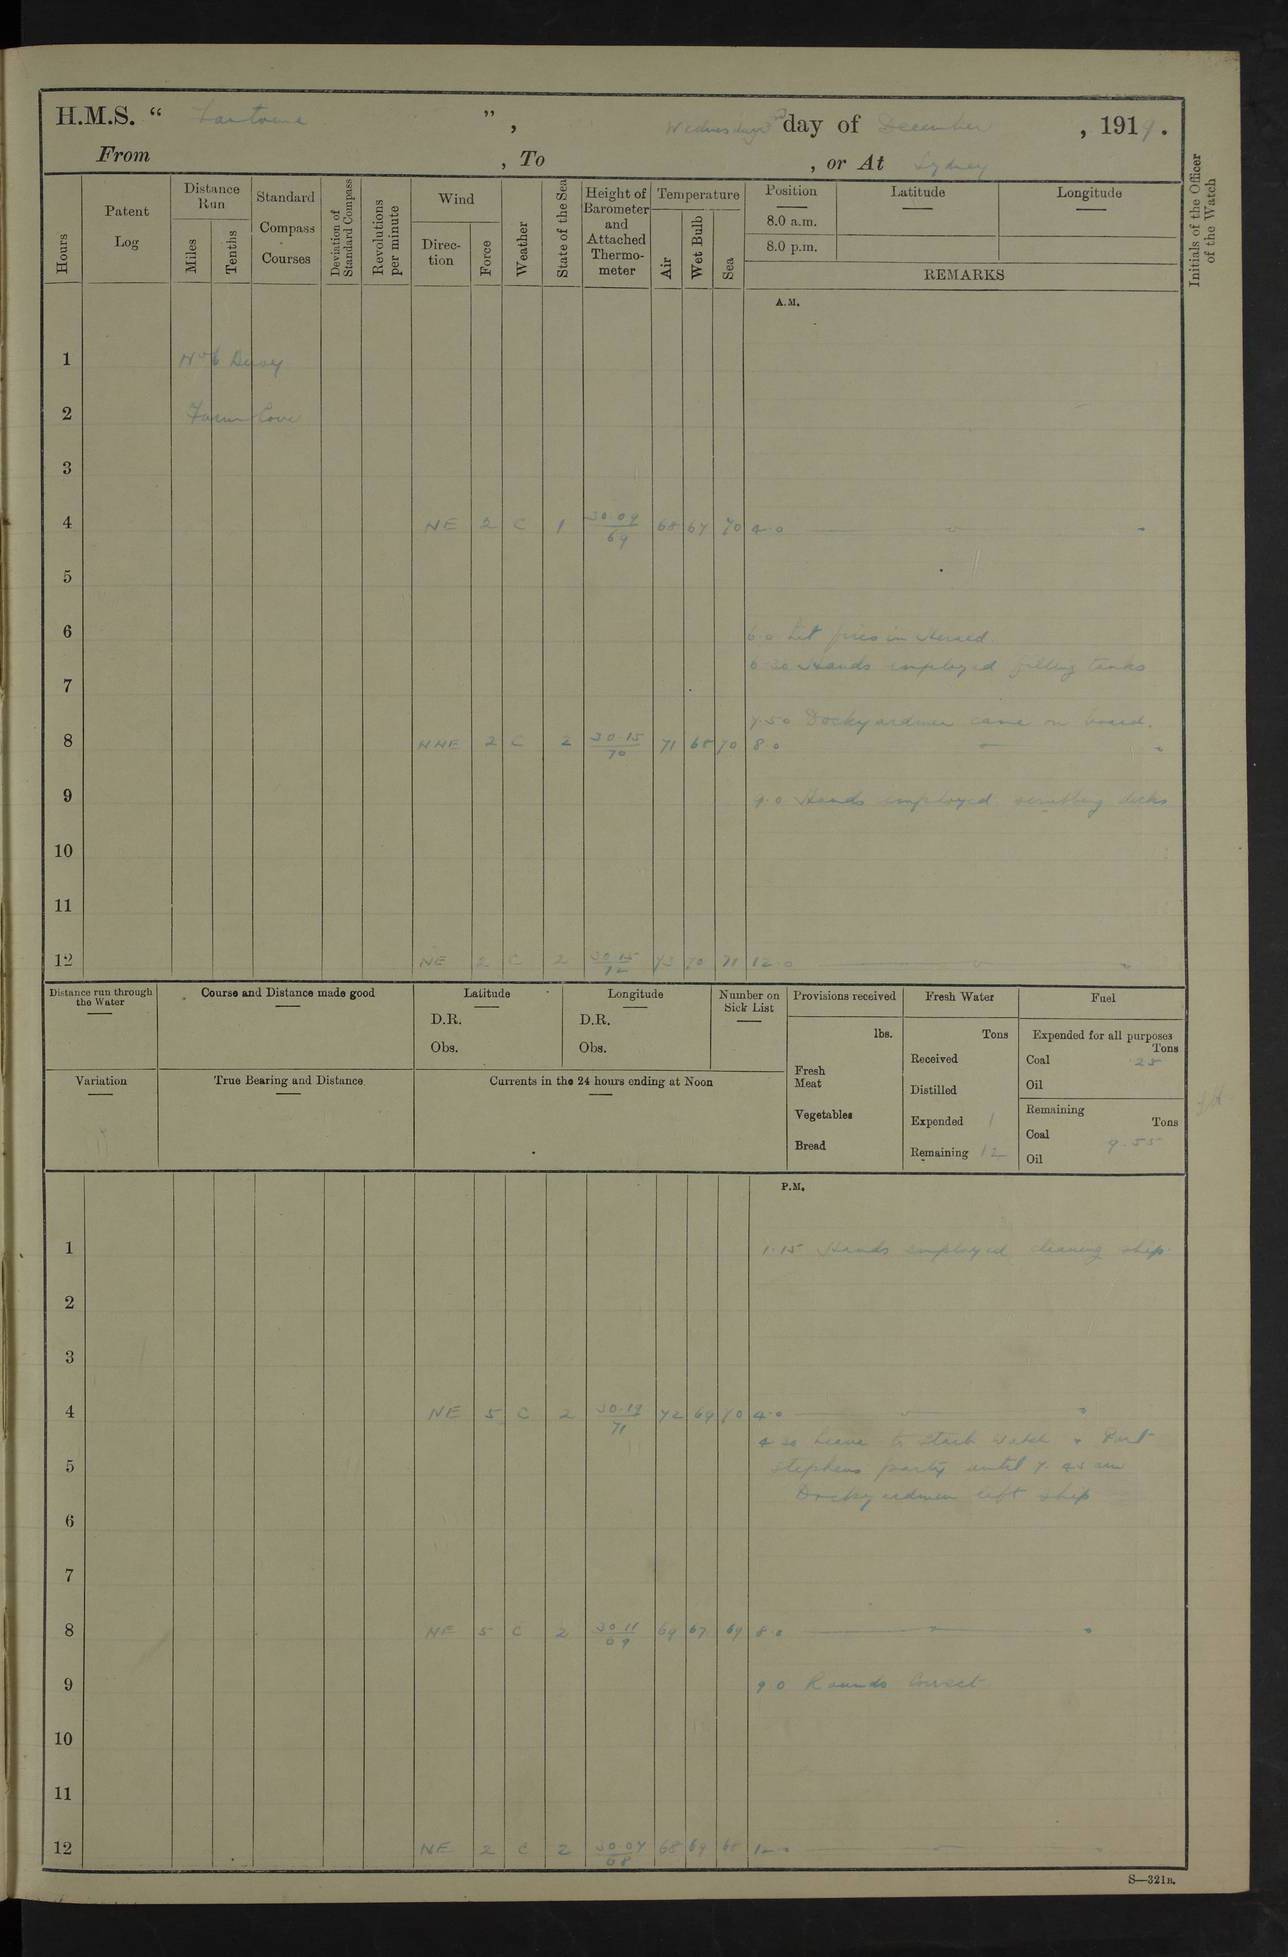 H.M.S. “ Fantome ”, Wednesday 3rd day of December, 1919.
From , To , or At Sydney
Hours
Patent Log
Distance Run
Miles
Tenths
Standard Compass Courses
Deviation of Standard Compass
Revolutions per minute
Wind
Direction
Force
Weather
State of the Sea
Height of Barometer and Attached Thermometer
Temperature
Air
Wet Bulb
Sea
Position
8.0 a.m.
8.0 p.m.
Latitude
Longitude
REMARKS
Initials of the Officer of the Watch
A.M.
1 No 6 Buoy
2 Farm Cove
3
4 NE 2 C 1 30.09/69 68 67 70 4.0
5
6 6.0 Lit fires in
6.30 Hands employed filling tanks
7
7.50 Dockyardmen came on board.
8 NNE 2 C 2 30.15/70 71 68 70 8.0
9 9.0 Hands employed scrubbing decks
10
11
12 NE 2 C 2 30.15/72 73 70 71 12.0
Distance run through the Water
Course and Distance made good
Latitude
D.R.
Obs.
Longitude
D.R.
Obs.
Number on Sick List
Provisions received
lbs.
Fresh Meat
Vegetables
Bread
Fresh Water
Tons
Received
Distilled
Expended 1
Remaining 12
Fuel
Expended for all purposes
Tons
Coal .25
Oil
Remaining
Tons
Coal 9.55
Oil
Variation
True Bearing and Distance
Currents in the 24 hours ending at Noon
P.M.
1 1.15 Hands employed cleaning ship.
2
3
4 NE 5 C 2 30.19/71 72 69 70 4.0
4.30 Leave to Starb watch & Port
5 Stephens party until 7.45 am
Dockyardmen left ship
6
7
8 NE 5 C 2 30.11/69 69 67 69 8.0
9 9.0 Rounds Correct
10
11
12 NE 2 C 2 30.07/68 68 69 68 12.0
S—321B.